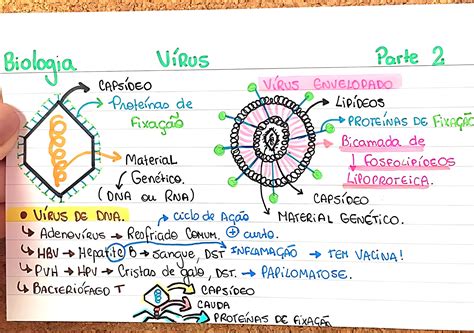 Biologia Vírus Parte 2
CAPSÍDEO
Proteínas de Fixação
Material Genético.
(DNA ou RNA)
VÍRUS ENVELOPADO
LIPÍDEOS
PROTEÍNAS DE FIXAÇÃO
Bicamada de
↓ FOSFOLIPÍDEOS
LIPOPROTEICA.
CAPSÍDEO
MATERIAL GENÉTICO.
• VÍRUS DE DNA. → Ciclo de Ação
↳ Adenovírus → Resfriado Comum. ⊕ curto.
↳ HBV → Hepatite B → sangue, DST INFLAMAÇÃO → TEM VACINA!
↳ PVH → HPV → Cristas de galo, DST. → PAPILOMATOSE.
↳ BACTERIÓFAGO T
CAPSÍDEO
CAUDA
PROTEÍNAS DE FIXAÇÃO